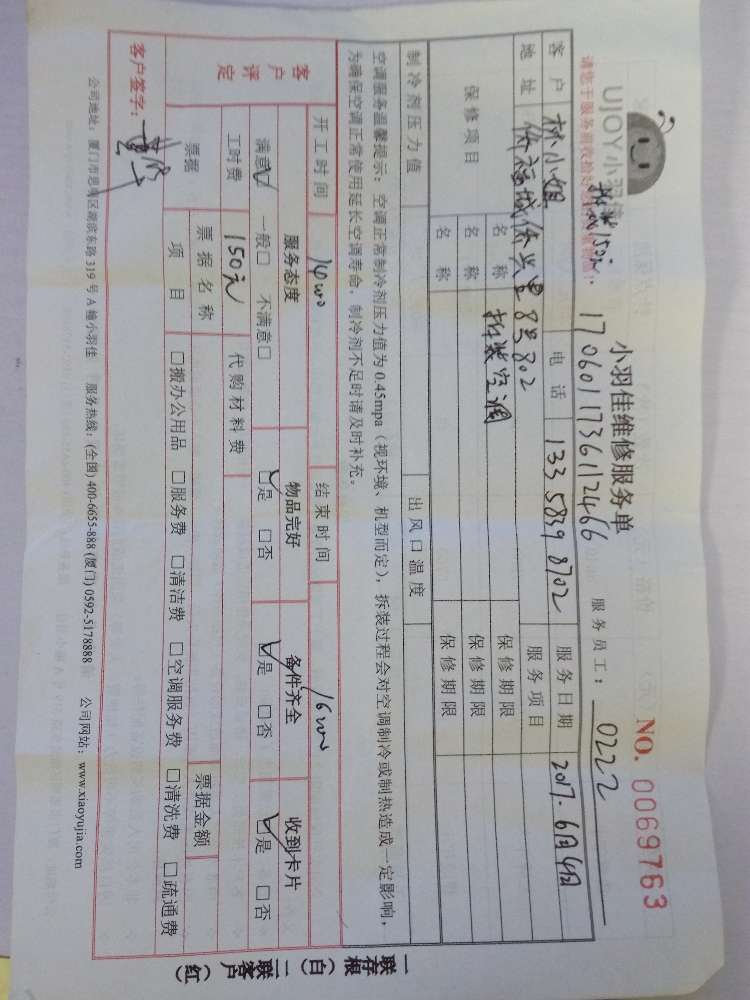 UJOY小羽佳
小羽佳维修服务单 NO. 0069763
请您于服务前收拾好
拆装150元
1706011736112466 服务员工：0222
客户 林小姐 电话 133 5839 8702 服务日期 2017.6月4日
地址 侨福城侨兴里8号802 服务项目
保修项目 名称 拆装空调 保修期限
名称 保修期限
名称 保修期限
制冷剂压力值 出风口温度
空调服务温馨提示：空调正常制冷剂压力值为0.45mpa（视环境、机型而定），拆装过程会对空调制冷或制热造成一定影响，
为确保空调正常使用延长空调寿命，制冷剂不足时请及时补充。
开工时间 14:00 结束时间 16:00
客户评定 服务态度 物品完好 备件齐全 收到卡片
满意☑ 一般□ 不满意□ ☑是 □否 ☑是 □否 ☑是 □否
工时费 150元 代购材料费
票据 票据名称 票据金额
项目 □搬办公用品 □服务费 □清洁费 □空调服务费 □清洗费 □疏通费
客户签字：
公司地址：厦门市思明区湖滨东路319号A幢小羽佳 服务热线：(全国) 400-6655-888 (厦门) 0592-5178888 公司网站：www.xiaoyujia.com
一联存根（白）二联客户（红）